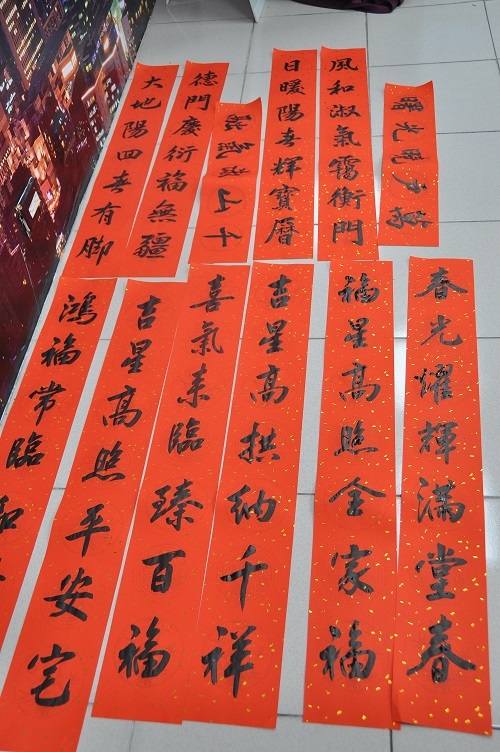 風和淑氣靄衡門
日暖陽春輝寶曆
德門慶衍福無疆
大地陽回春有脚
春光耀輝滿堂春
福星高照全家福
吉星高拱納千祥
喜氣来臨臻百福
吉星高照平安宅
鴻福常臨和